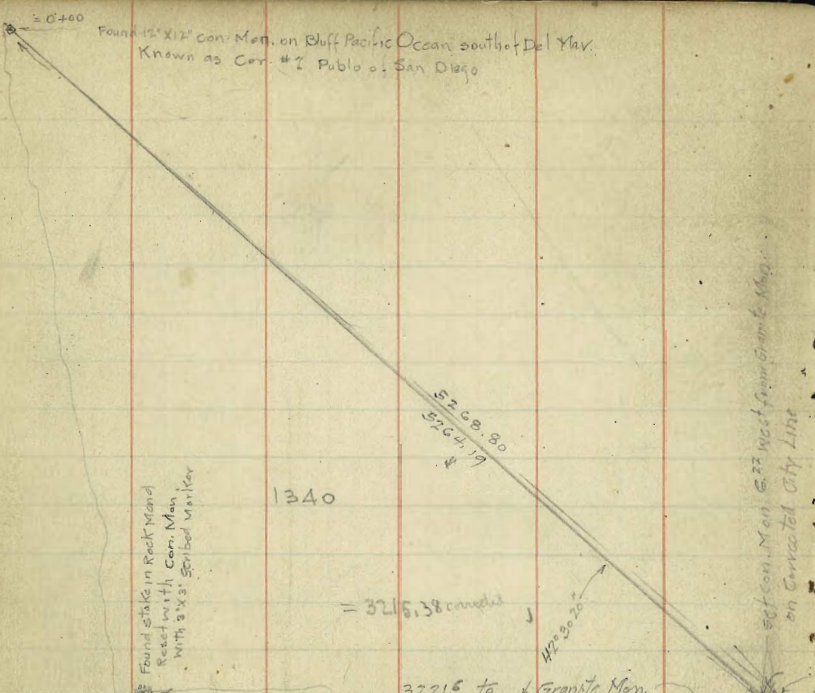 = 0+00
Found 12"X12" con. Mon. on Bluff Pacific Ocean south of Del Mar.
Known as Cor. #2 Publo of San Diego
5268.80
5264.19
1340
Found stake in Rock Mond
Reset with Con. Mon.
With 3"X3" scribed Marker
= 3215.38 corrected
42°30'20"
set con. Mon 6.22 west from Granite Mon.
on Corrected City Line
Granite Mon.